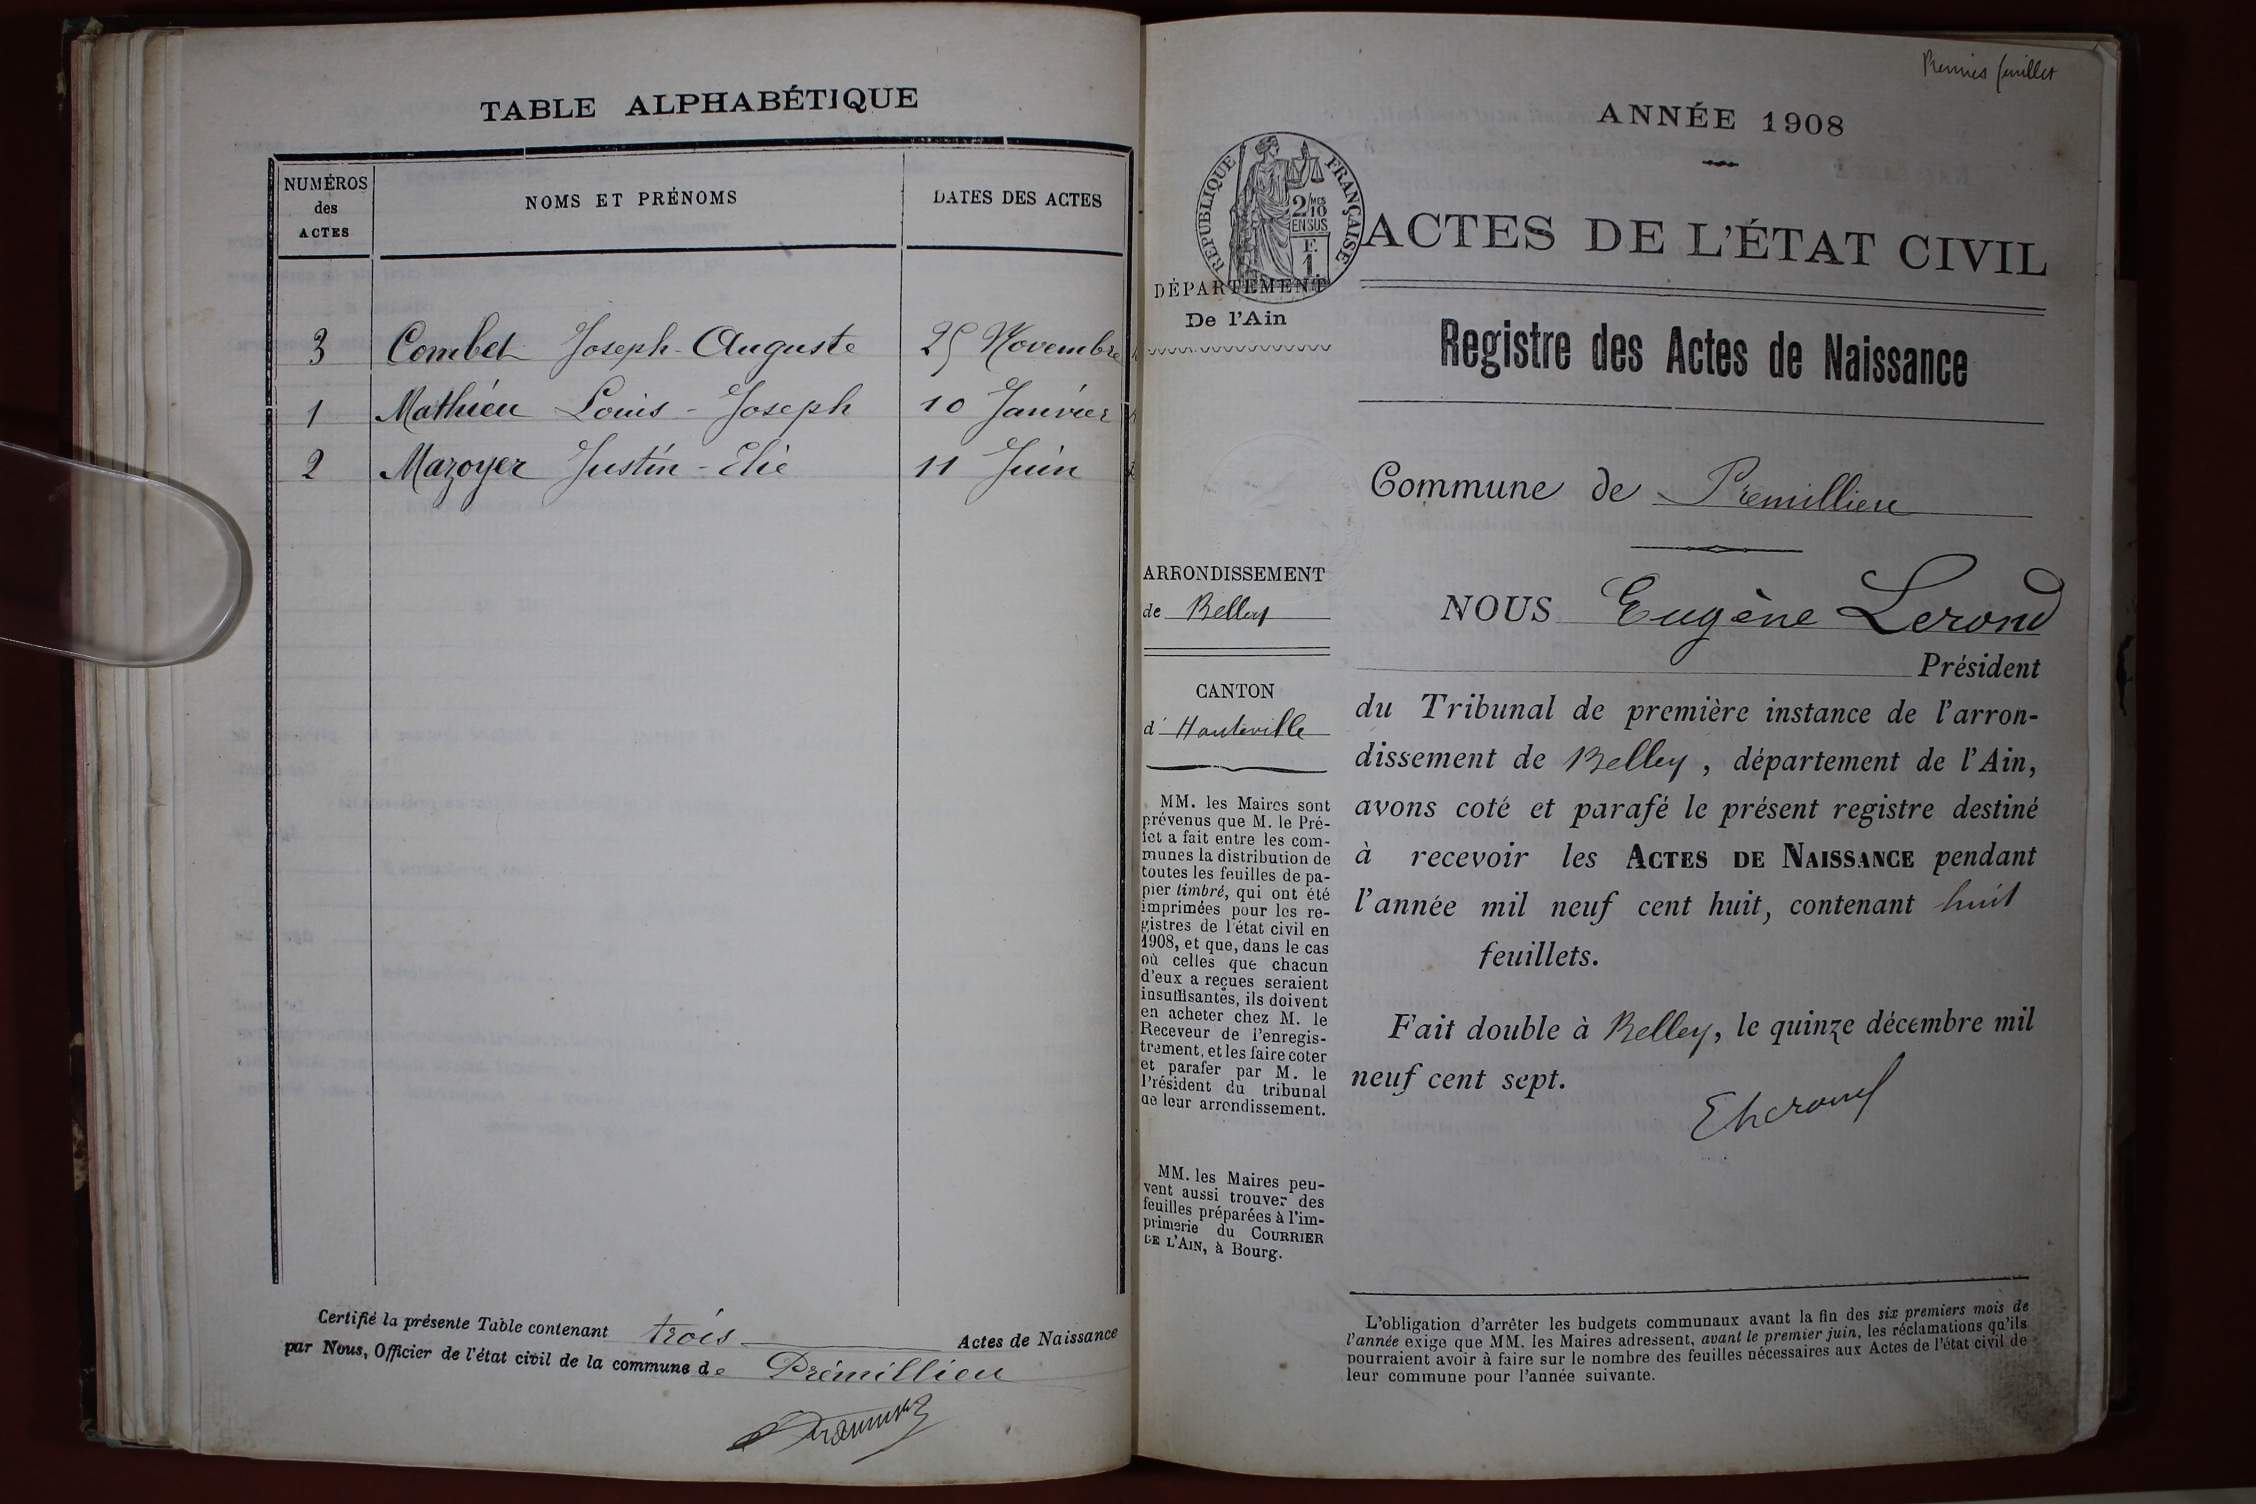 TABLE ALPHABÉTIQUE
NUMÉROS
des
ACTES
NOMS ET PRÉNOMS
DATES DES ACTES
3 Combet Joseph-Auguste 25 Novembre
1 Mathieu Louis-Joseph 10 Janvier
2 Mazoyer Justin-Elie 11 Juin
Certifié la présente Table contenant trois Actes de Naissance
par Nous, Officier de l'état civil de la commune de Prémillieu
Premier feuillet
ANNÉE 1908
RÉPUBLIQUE FRANÇAISE
2/10 MES
EN SUS
F.
1
ACTES DE L'ÉTAT CIVIL
DÉPARTEMENT
De l'Ain
Registre des Actes de Naissance
Commune de Premillieu
ARRONDISSEMENT
de Belley
CANTON
d' Hauteville
MM. les Maires sont
prévenus que M. le Pré-
fet a fait entre les com-
munes la distribution de
toutes les feuilles de pa-
pier timbré, qui ont été
imprimées pour les re-
gistres de l'état civil en
1908, et que, dans le cas
où celles que chacun
d'eux a reçues seraient
insuffisantes, ils doivent
en acheter chez M. le
Receveur de l'enregis-
trement, et les faire coter
et parafer par M. le
Président du tribunal
de leur arrondissement.
MM. les Maires peu-
vent aussi trouver des
feuilles préparées à l'im-
primerie du COURRIER
DE L'AIN, à Bourg.
NOUS Eugène Lerond
Président
du Tribunal de première instance de l'arron-
dissement de Belley, département de l'Ain,
avons coté et parafé le présent registre destiné
à recevoir les ACTES DE NAISSANCE pendant
l'année mil neuf cent huit, contenant huit
feuillets.
Fait double à Belley, le quinze décembre mil
neuf cent sept.
ELerond
L'obligation d'arrêter les budgets communaux avant la fin des six premiers mois de
l'année exige que MM. les Maires adressent, avant le premier juin, les réclamations qu'ils
pourraient avoir à faire sur le nombre des feuilles nécessaires aux Actes de l'état civil de
leur commune pour l'année suivante.